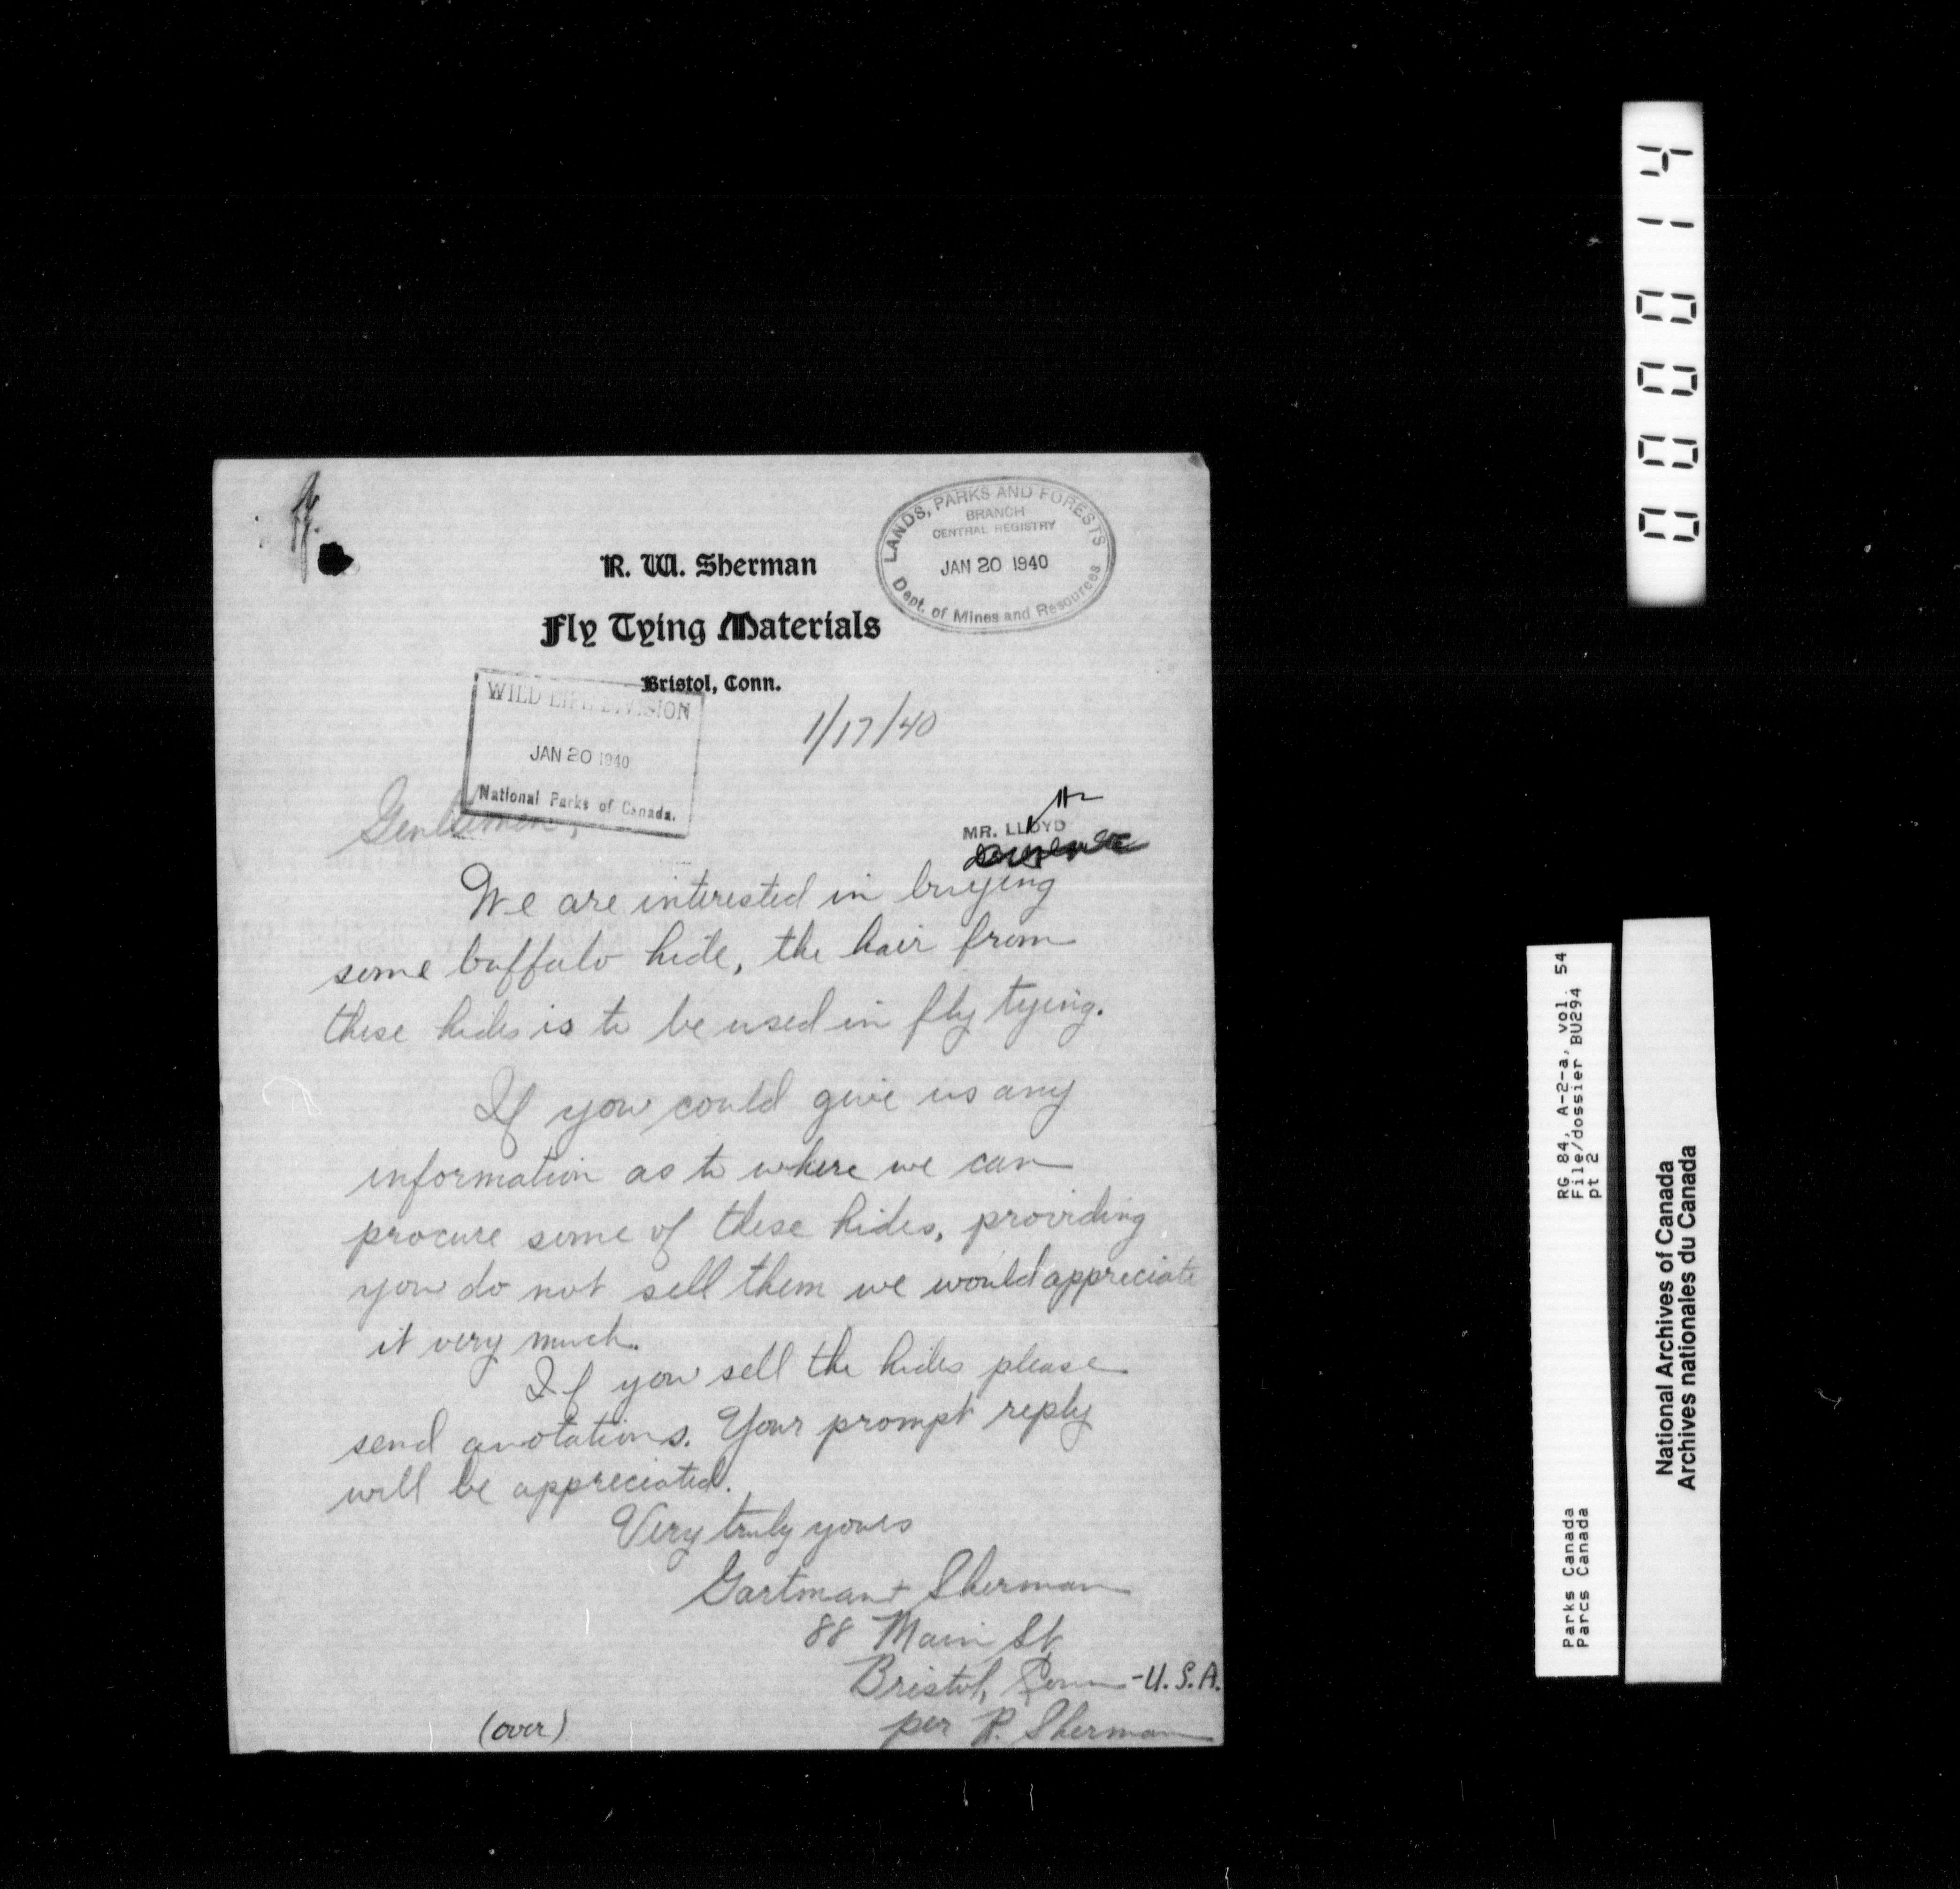 LANDS, PARKS AND FORESTS
BRANCH
CENTRAL REGISTRY
JAN 20 1940
Dept. of Mines and Resources
R. W. Sherman
Fly Tying Materials
Bristol, Conn.
WILD LIFE DIVISION
JAN 20 1940
National Parks of Canada.
1/17/40
Gentlemen,
MR. LLOYD
We are interested in buying
some buffalo hide, the hair from
these hides is to be used in fly tying.
If you could give us any
information as to where we can
procure some of these hides, providing
you do not sell them we would appreciate
it very much.
If you sell the hides please
send quotations. Your prompt reply
will be appreciated.
Very truly yours
Gartman + Sherman
88 Main St
Bristol, Conn - U.S.A.
per R. Sherman
(over)
000014
RG 84, A-2-a, vol. 54
File/dossier BU294
pt 2
Parks Canada
Parcs Canada
National Archives of Canada
Archives nationales du Canada